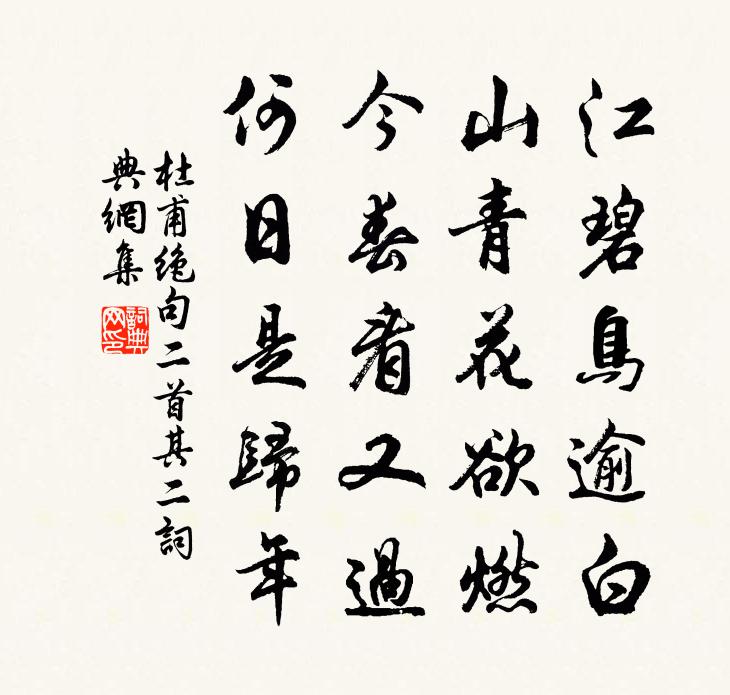 江碧鳥逾白
山青花欲燃
今春看又過
何日是歸年
杜甫絕句二首其二詞
典網集
詞典
网印